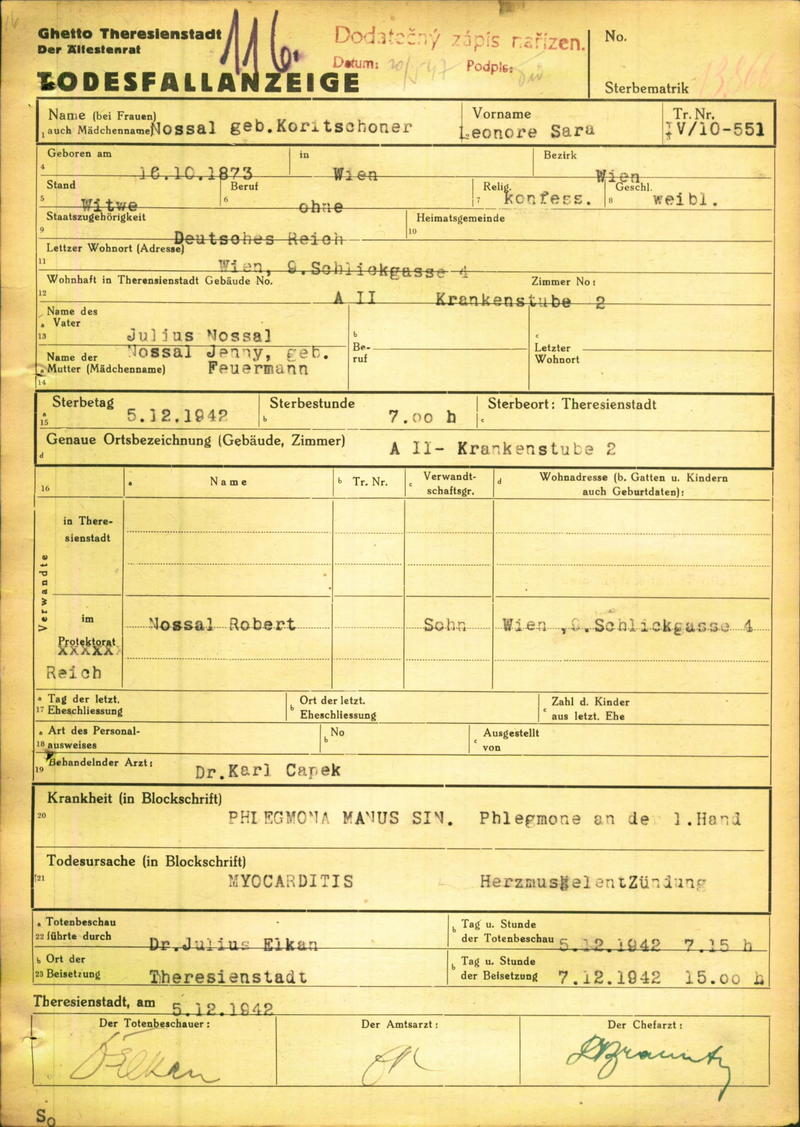 Ghetto Theresienstadt
Der Ältestenrat
116.
Dodatečný zápis nařízen.
Datum: Podpis:
No.
TODESFALLANZEIGE
Sterbematrik
Name (bei Frauen) Vorname Tr. Nr.
1 auch Mädchenname) Nossal geb.Koritschoner Leonore Sara IV/10-551
Geboren am in Bezirk
4 16.10.1873 Wien Wien
Stand Beruf Relig. Geschl.
5 Witwe 6 ohne 7 konfess. 8 weibl.
Staatszugehörigkeit Heimatsgemeinde
9 Deutsches Reich 10
Lettzer Wohnort (Adresse)
11 Wien, 9.Schlickgasse 4
Wohnhaft in Therensienstadt Gebäude No. Zimmer No:
12 A II Krankenstube 2
Name des
a Vater
13 Julius Nossal
b Beruf
c Letzter Wohnort
Name der Nossal Jenny, geb.
Mutter (Mädchenname) Feuermann
14
Sterbetag Sterbestunde Sterbeort: Theresienstadt
a 15 5.12.1942 b 7.00 h c
Genaue Ortsbezeichnung (Gebäude, Zimmer) A II- Krankenstube 2
d
16 a Name b Tr. Nr. c Verwandt-schaftsgr. d Wohnadresse (b. Gatten u. Kindern
auch Geburtdaten):
Verwandte
in There-
sienstadt
im Nossal Robert Sohn Wien ,9.Schlickgasse 4
Protektorat
XXXXX
Reich
a Tag der letzt. b Ort der letzt. c Zahl d. Kinder
17 Eheschliessung Eheschliessung aus letzt. Ehe
a Art des Personal- b No c Ausgestellt
18 ausweises von
19 Behandelnder Arzt: Dr.Karl Capek
Krankheit (in Blockschrift)
20 PHLEGMONA MANUS SIN. Phlegmone an de l.Hand
Todesursache (in Blockschrift)
21 MYOCARDITIS HerzmuskelentZündung
a Totenbeschau b Tag u. Stunde
22 führte durch Dr.Julius Elkan der Totenbeschau 5.12.1942 7.15 h
b Ort der b Tag u. Stunde
23 Beisetzung Theresienstadt der Beisetzung 7.12.1942 15.00 h
Theresienstadt, am 5.12.1942
Der Totenbeschauer: Der Amtsarzt: Der Chefarzt:
Elkan
So